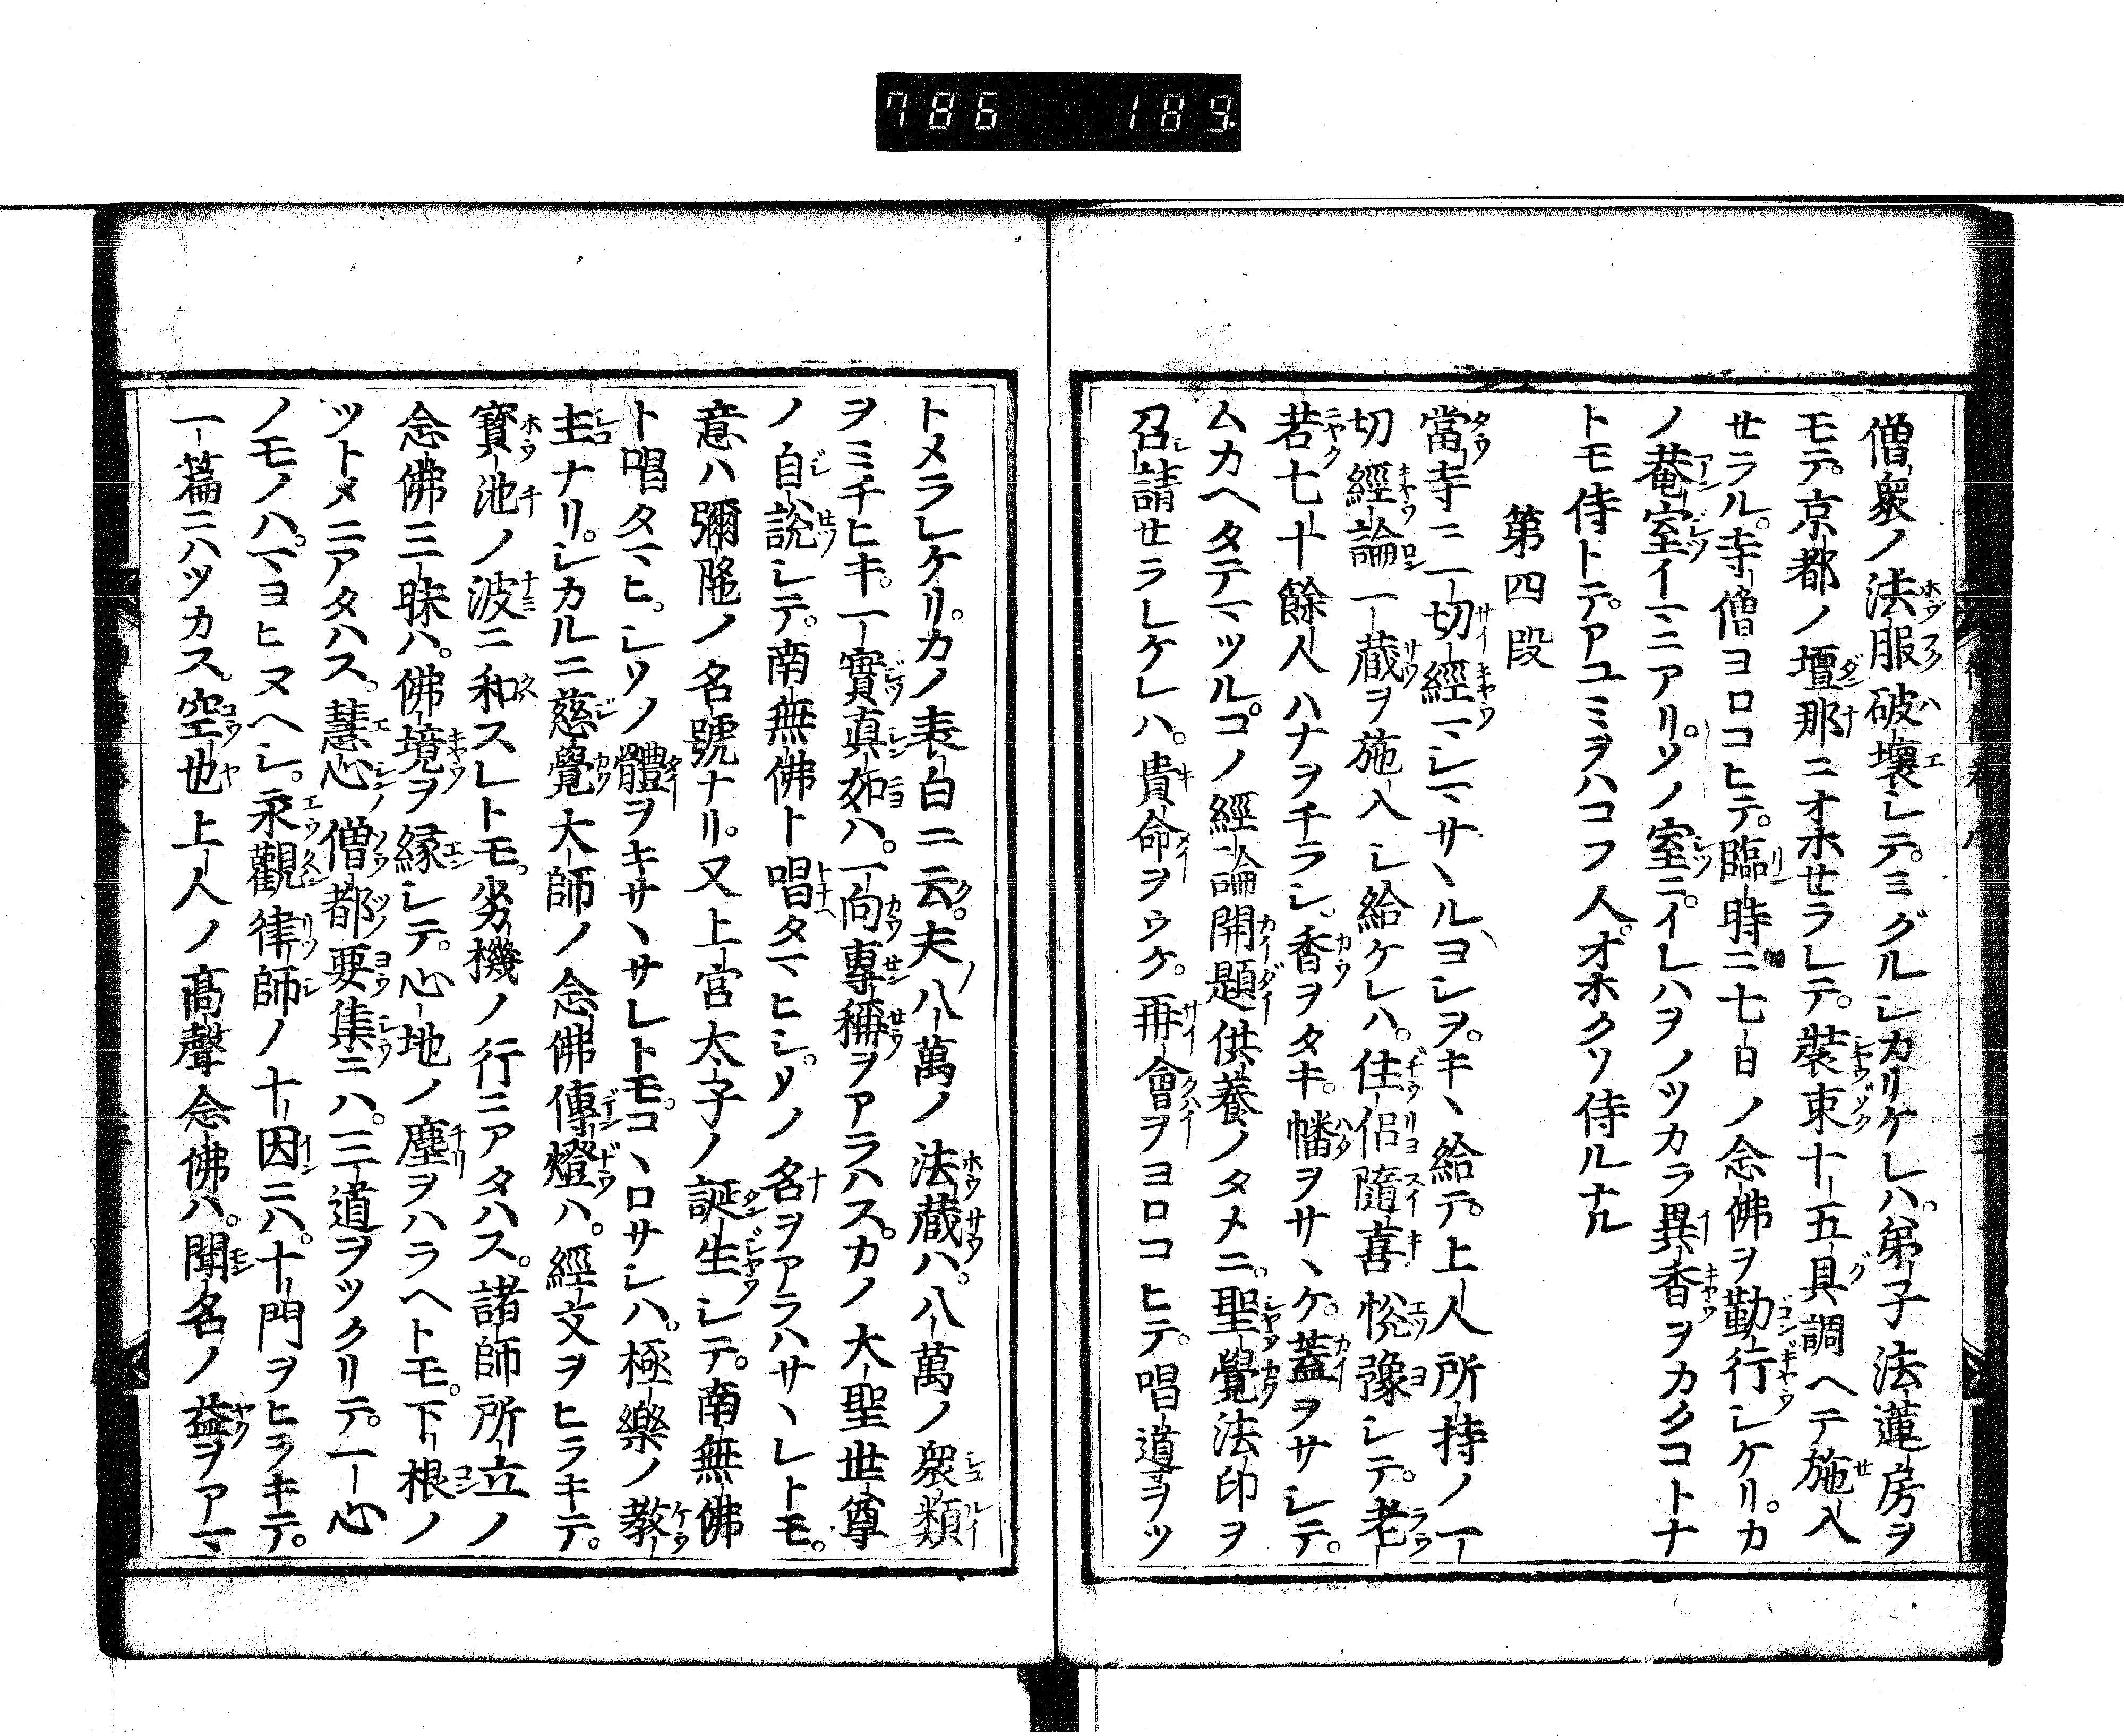 786 189
僧衆ノ法服破壞シテ。ミグルシカリケレハ。弟子法蓮房ヲ
モテ。京都ノ壇那ニオホセラレテ。裝束十五具調ヘテ施入
セラル。寺僧ヨロコヒテ。臨時ニ七日ノ念佛ヲ勤行シケリ。カ
ノ菴室イマニアリ。ソノ室ニ。イレハヲノツカラ異香ヲカクコトナ
トモ侍トテ。アユミヲハコフ人。オホクソ侍ルナル
第四段
當寺ニ一切經マシマサヽルヨシヲ。キヽ給テ。上人所持ノ一
切經論一藏ヲ施入シ給ケレハ。住侶隨喜悅豫シテ。老
若七十餘人ハナヲチラシ。香ヲタキ。幡ヲサヽケ。蓋ヲサシテ。
ムカヘタテマツル。コノ經論開題供養ノタメニ。聖覺法印ヲ
召請セラレケレハ。貴命ヲウケ。再會ヲヨロコヒテ。唱導ヲツ
トメラレケリ。カノ表白ニ云ク。夫八萬ノ法藏ハ。八萬ノ衆類
ヲミチヒキ。一實眞如ハ。一向專稱ヲアラハス。カノ大聖世尊
ノ自說シテ。南無佛ト唱タマヒシ。ソノ名ヲアラハサヽレトモ。
意ハ彌陀ノ名號ナリ。又上宮太子ノ誕生シテ。南無佛
ト唱タマヒ。シソノ體ヲキサヽサレトモ。コヽロサシハ。極樂ノ敎
主ナリ。シカルニ慈覺大師ノ念佛傳燈ハ。經文ヲヒラキテ。
寶池ノ波ニ和スレトモ。劣機ノ行ニアタハス。諸師所立ノ
念佛三昧ハ。佛境ヲ緣シテ。心地ノ塵ヲハラヘトモ。下根ノ
ツトメニアタハス。慧心ノ僧都要集ニハ。三道ヲツクリテ。一心
ノモノハ。マヨヒヌヘシ。永觀律師ノ十因ニハ。十門ヲヒラキテ。
一篇ニハツカス。空也上人ノ髙聲念佛ハ。聞名ノ益ヲアマ